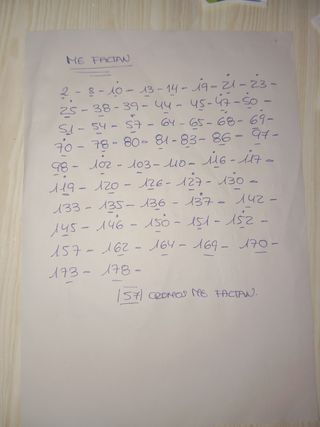 ME FACTAN
2 - 8 - 10 - 13 - 14 - 19 - 21 - 23 -
25 - 38 - 39 - 44 - 45 - 47 - 50 -
51 - 54 - 57 - 64 - 65 - 68 - 69 -
70 - 78 - 80 - 81 - 83 - 86 - 97 -
98 - 102 - 103 - 110 - 116 - 117 -
119 - 120 - 126 - 127 - 130 -
133 - 135 - 136 - 137 - 142 -
145 - 146 - 150 - 151 - 152 -
157 - 162 - 164 - 169 - 170 -
173 - 178 -
57 CROMOS ME FACTAN.